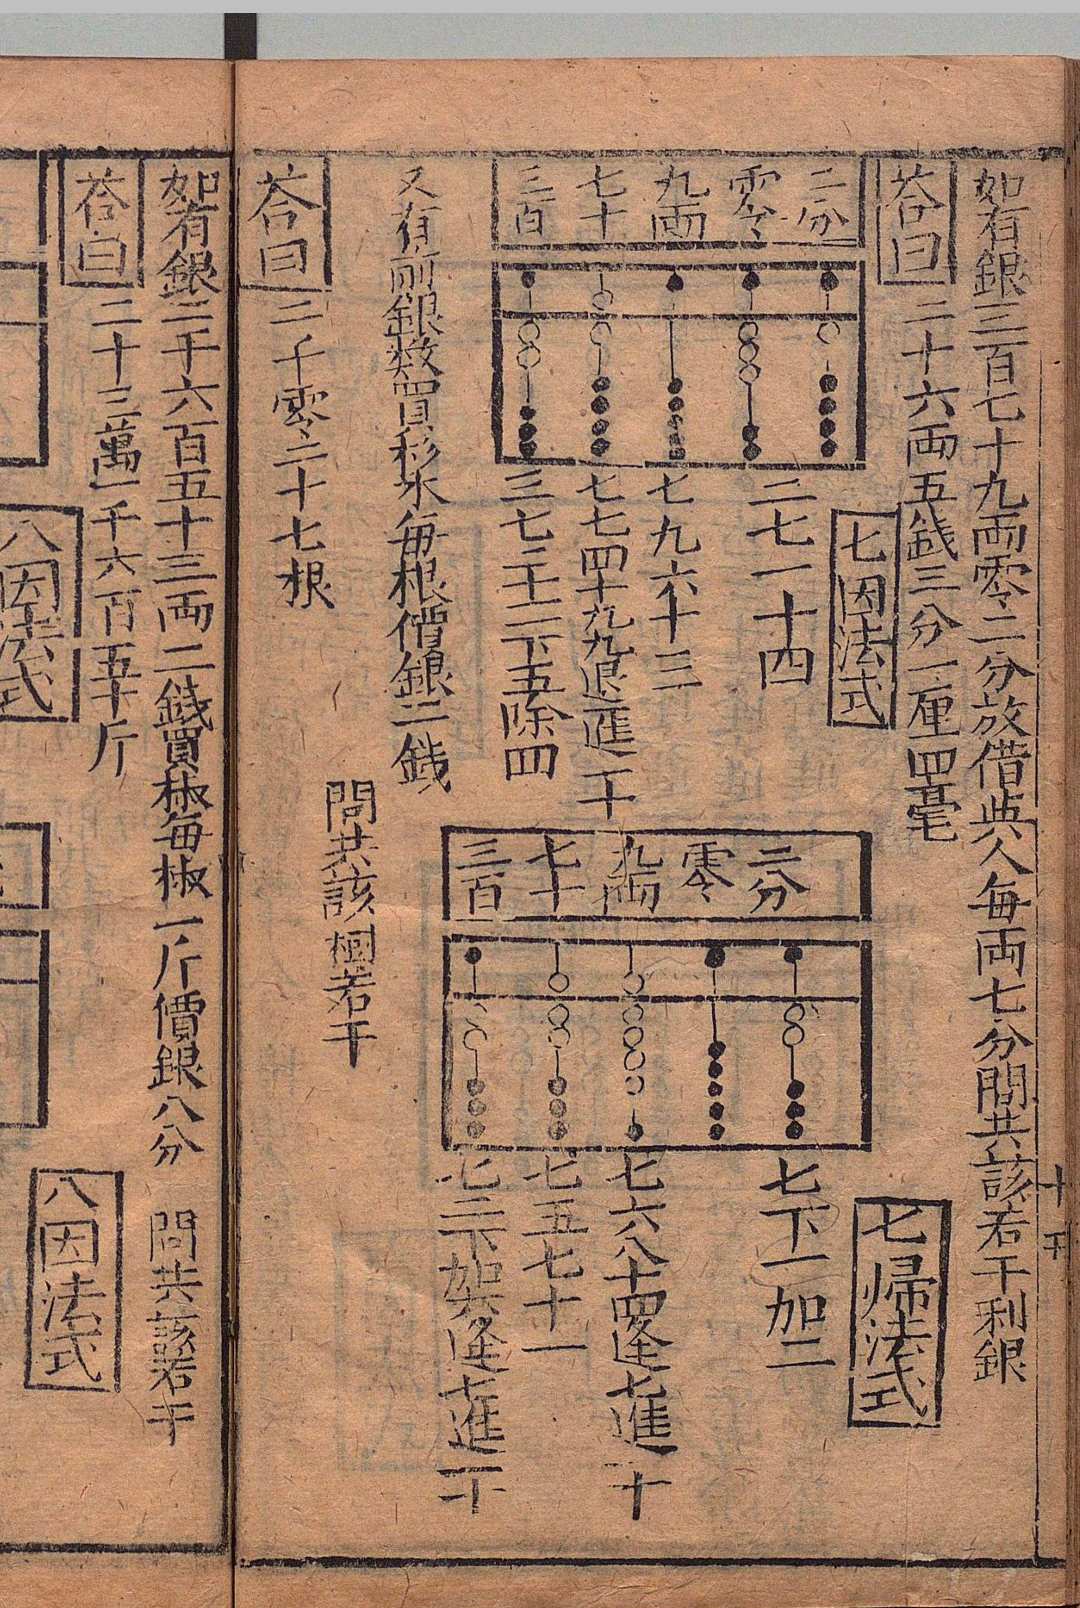 如有銀三百七十九兩零二分放借與人每兩七分問共該若干利銀
答曰
二十六兩五錢三分一厘四毫
七因法式
二分
零
九兩
七十
三百
二七一十四
七九六十三
七七四十九九退一進一十
三七二十一下五除四
七歸法式
二分
零
九兩
七十
三百
七下一加二
七六八十四逢七進一十
七五七十一
七三下加六逢七進一十
又有前銀數買杉木每根價銀二錢
問共該樹若干
答曰
二千零二十七根
如有銀二千六百五十三兩二錢買椒每椒一斤價銀八分
問共該若干
答曰
二十三萬一千六百五十斤
八因法式
八因法式